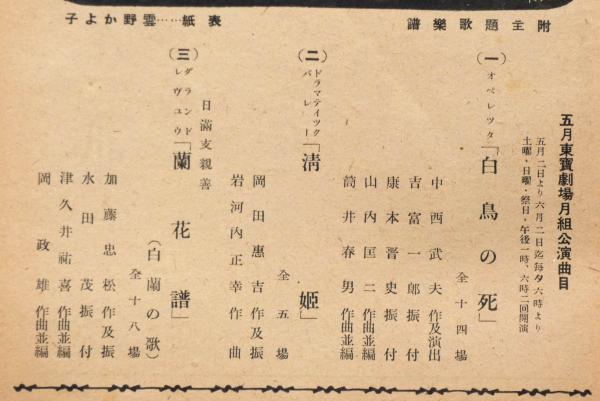 附主題歌樂譜
表紙……雲野かよ子
五月東寶劇場月組公演曲目
五月二日より六月二日迄毎夕六時より
土曜・日曜・祭日・午後一時、六時二回開演
(一) オペレツタ「白鳥の死」
全十四場
中西武夫 作及演出
吉富一郎 振付
康本晋史 振付
山内匡二 作曲並編
筒井春男 作曲並編
(二) ドラマテイツクバレー「淸姬」
全五場
岡田惠吉 作及振
岩河内正幸 作曲
日滿支親善
(三) グランドレヴュウ「蘭花譜」
(白蘭の歌)
全十八場
加藤忠松 作及振
水田茂 振付
津久井祐喜 作曲並編
岡政雄 作曲並編